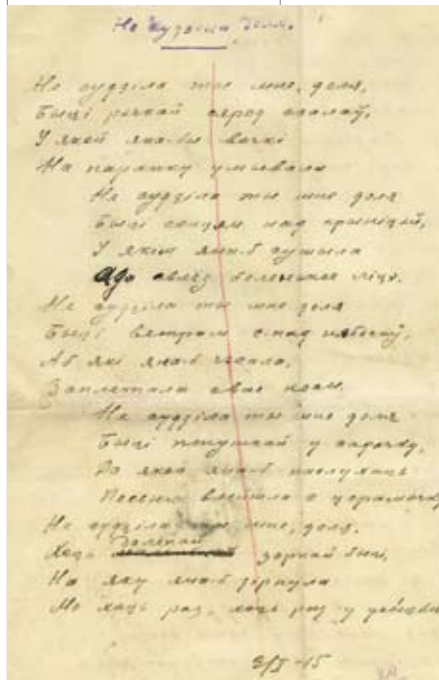 Не судзіла доля.
Не судзіла ты мне, доля,
Быці рэчкай сярод скалаў,
У якой яна-бы вочкі
На паранку умывала
Не судзіла ты мне доля
Быці сонцам над крыніцай,
У якім яна-б сушыла
Ад слёз
Не судзіла ты мне доля
Быці ветрам с-пад нябёсаў,
Аб які яна-б часала,
Заплетала свае косы.
Не судзіла ты мне доля
Быці у садочку,
Да якой яна-б
Песень
Не судзіла ты мне, доля,
Хоць далёкай зоркай быці,
На яку яна-б зірнула
Мо хоць раз, хоць раз у
9/I-45